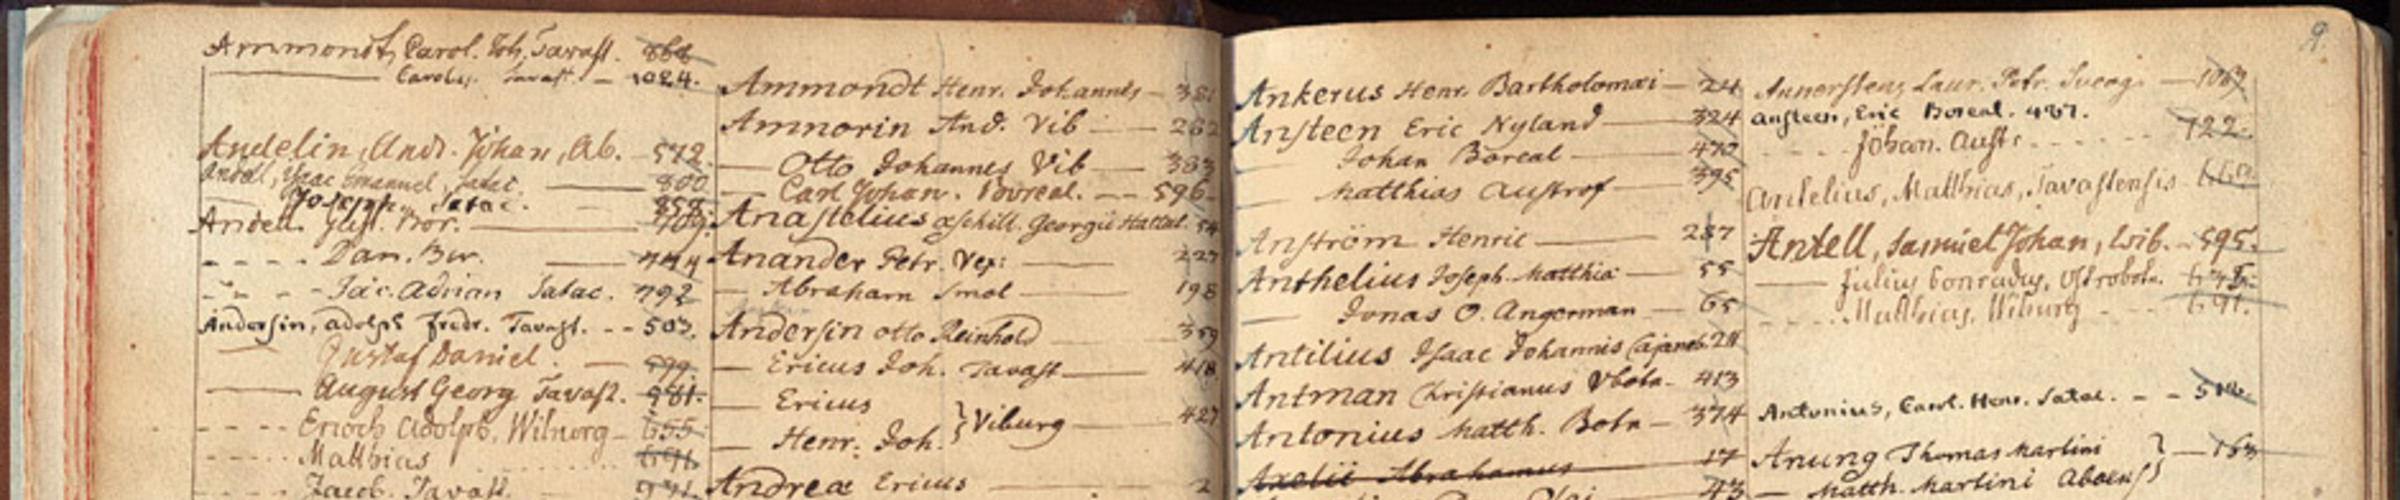 Ammondt, Carol. Joh. Tavast. 868
Carolus. Tavast. — 1024.
Andelin, Andr. Johan, Ab. 572.
Andel, Isaac Emanuel, Satac. 800
Joseph. Satac. 858.
Andell. Gust. Bor. 709.
Dan. Bor. 744
Jac. Adrian Satac. 792
Andersin, Adolph Fredr. Tavast. - - 503.
Gustaf Daniel. — 779
August Georg Tavast. 981.
Enoch Adolph, Wiborg - 655
Matthias 691.
Jacob. Tavast. 971
Ammondt Henr. Johannes — 381
Amnorin And. Vib — 282
— Otto Johannes Vib — 383
— Carl Johan. Boreal. — 596
Anastelius Æschill. Georgii Hattul. 54
Anander Petr. Vex: — 227
— Abraham Smol — 198
Andersin Otto Reinhold — 359
— Ericus Joh. Tavast — 418
— Ericus
— Henr. Joh. } Viburg — 427
Andreæ Ericus — 2
9.
Ankerus Henr. Bartholomæi — 24
Ansteen Eric Nyland — 324
Johan Boreal — 470
Matthias Austrof — 395
Anström Henric — 287
Anthelius Joseph. Matthiæ — 55
— Jonas O. Angerman — 65
Antilius Isaac Johannis Cajaneb. 211
Antman Christianus Vbotn — 413
Antonius Matth. Botn — 374
Axelii Abrahamus — 17
43
Annerstens Laur. Petr. Sveog. — 1067
Ansteen, Eric Boreal. 487.
Johan. Austr. 722.
Antelius, Matthias, Tavastensis 660.
Antell, Samuel Johan, Wib. - 595.
— Julius Conradus, Ostrobotn. 645.
Matthias. Wiburg 691.
Antonius, Carl. Henr. Satac. - - 516.
Anung Thomas Martini } — 163
— Matth. Martini Aboens }